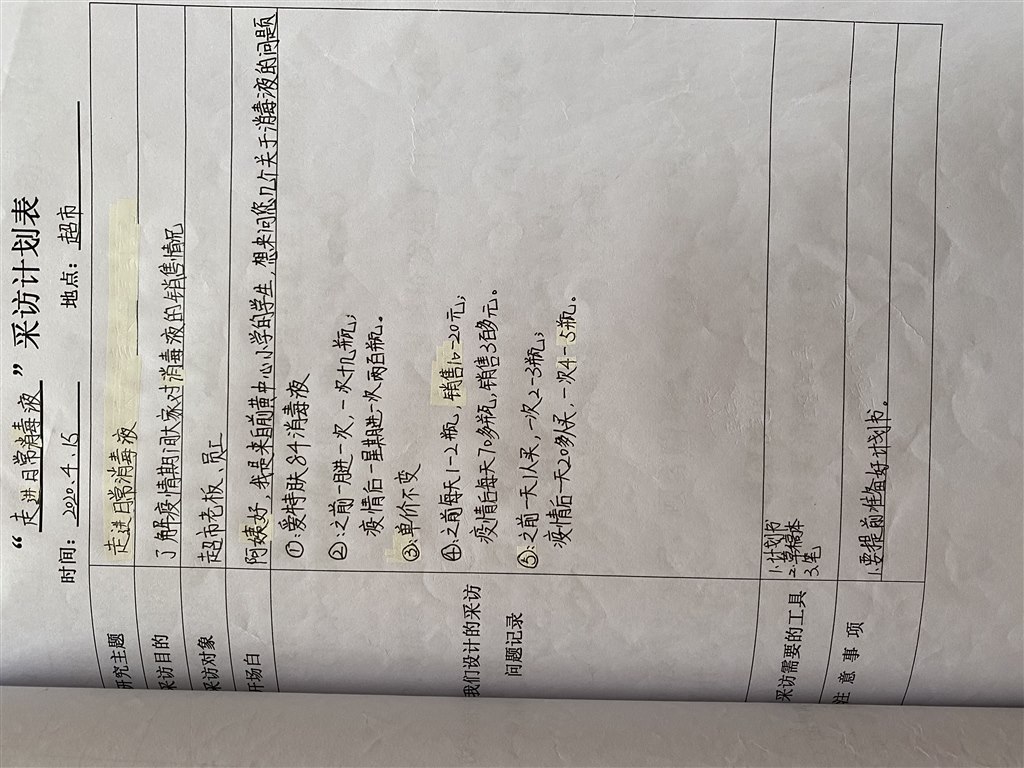 “走进日常消毒液”采访计划表
时间：2020.4.15 地点：超市
研究主题 走进日常消毒液
采访目的 了解疫情期间大家对消毒液的销售情况
采访对象 超市老板、员工
开场白 阿姨好，我是来自前黄中心小学的学生，想来问您几个关于消毒液的问题
我们设计的采访
问题记录
①：爱特肤84消毒液
②：之前一月进一次，一次十几瓶；
疫情后一星期进一次两百瓶。
③：单价不变
④：之前每天1-2瓶，销售10-20元；
疫情后每天70多瓶，销售3百多元。
⑤：之前一天1人买，一次2-3瓶；
疫情后一天20多人买，一次4-5瓶。
采访需要的工具
1.计划书
2.草稿本
3.笔
注意事项
1.要提前准备好计划书。